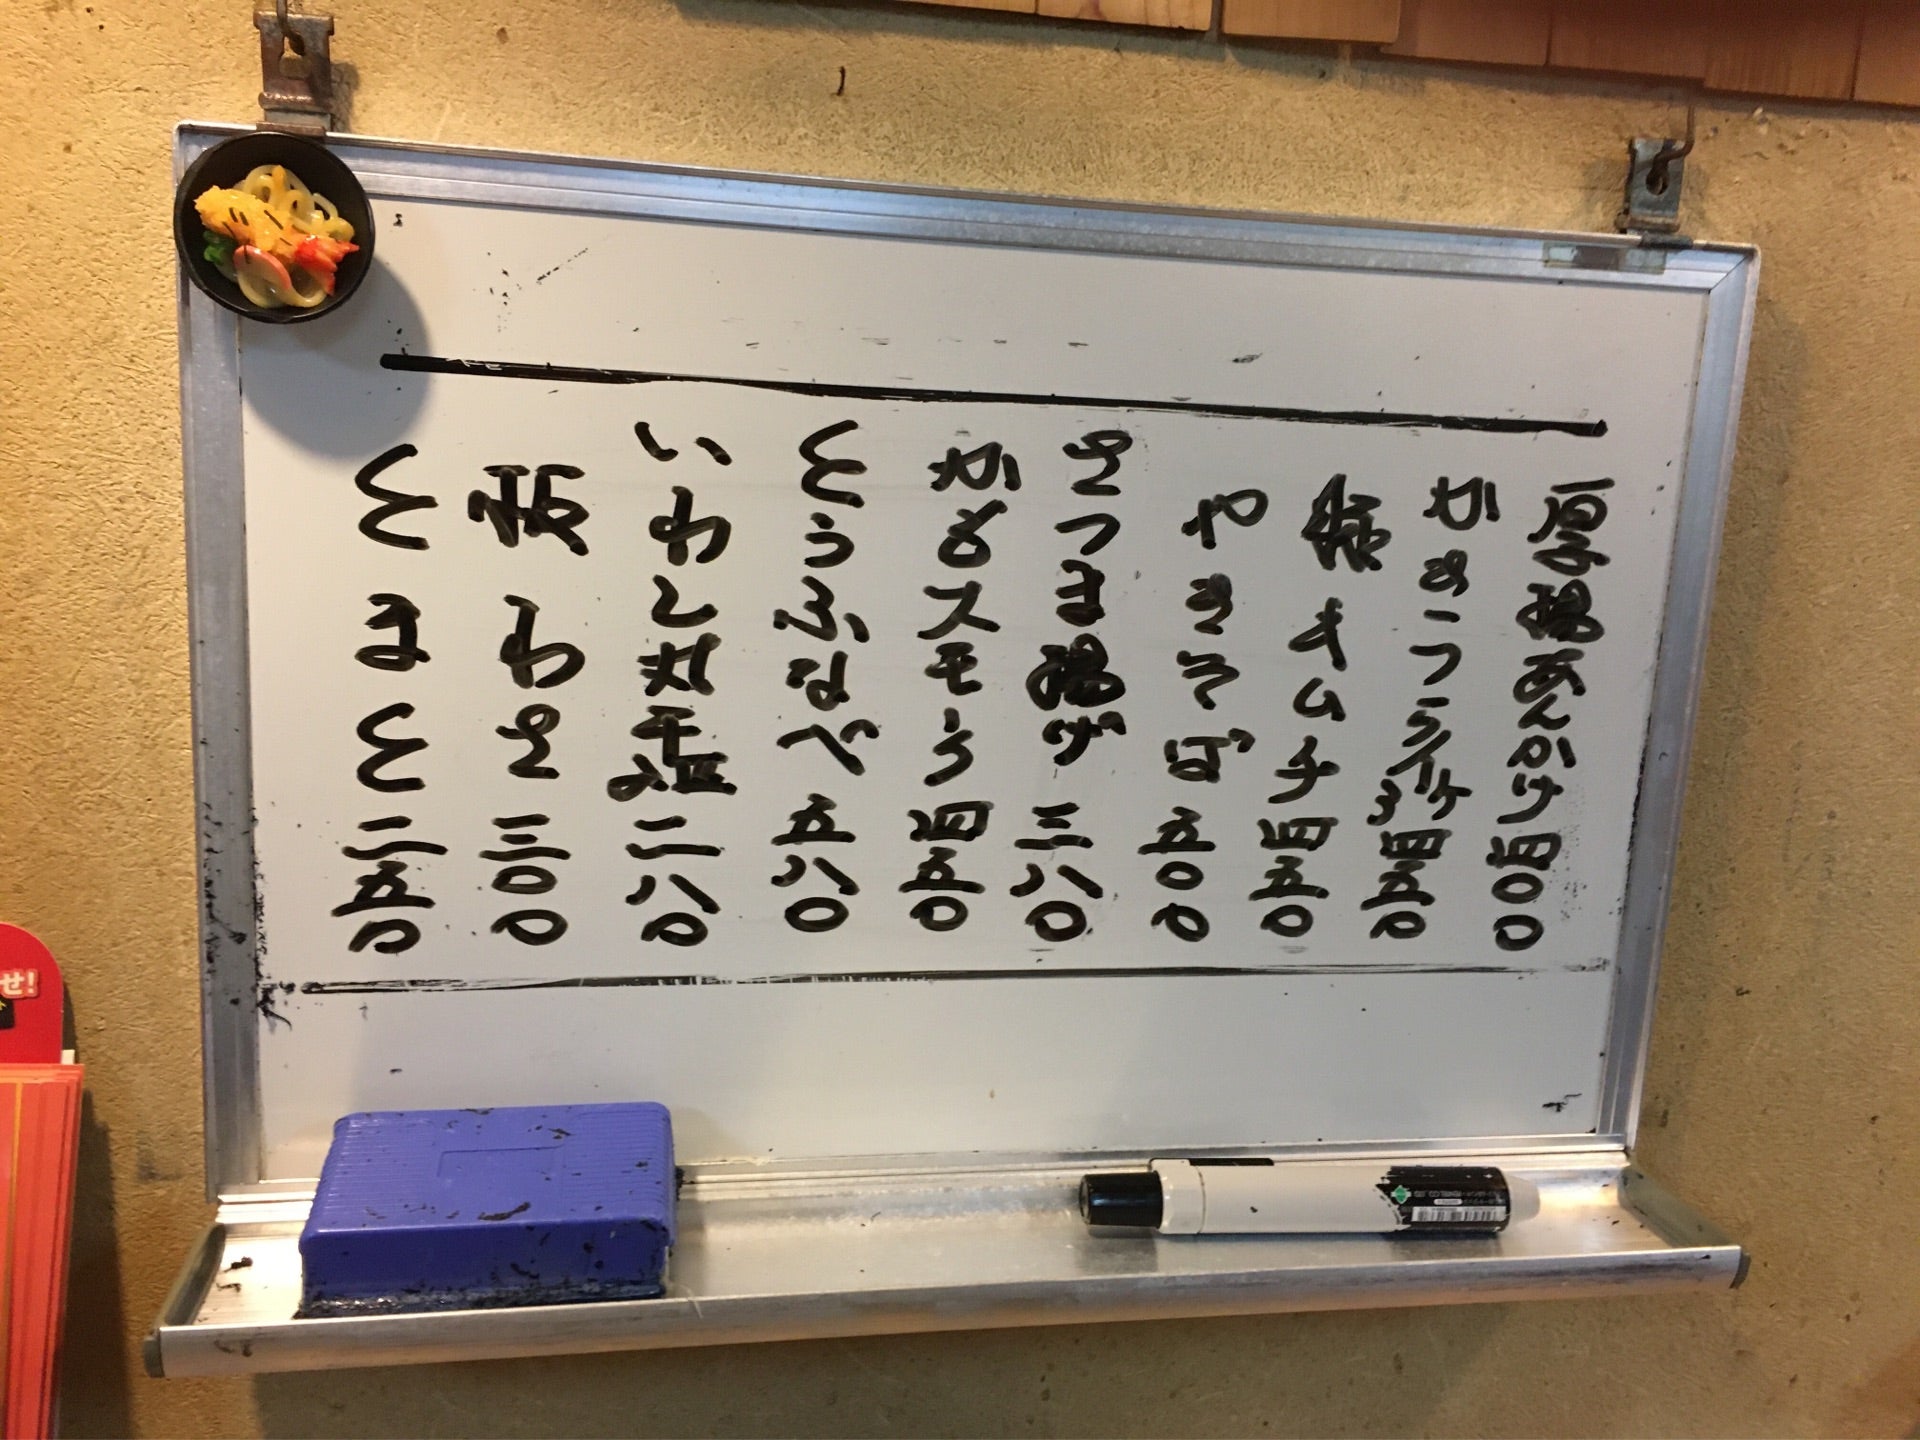 厚揚あんかけ 四〇〇
四五〇
豚キムチ 四五〇
やきそば 五〇〇
さつま揚げ 三八〇
かもスモーク 四五〇
とうふなべ 五八〇
いわし丸干 二八〇
板わさ 三〇〇
とまと 二五〇
せ!